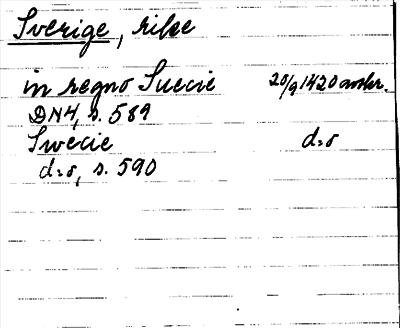 Sverige, rike
in regno Suecie 20/9 1420 avskr.
DN4, s. 589
Swecie d:o
d:o, s. 590